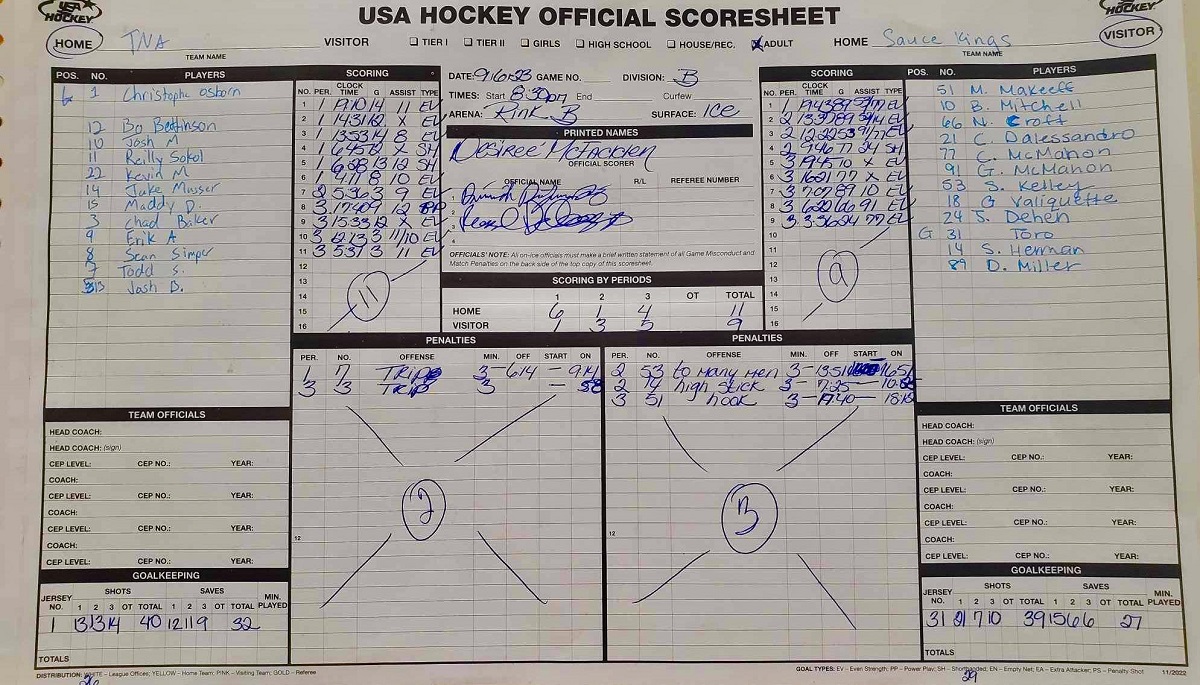 USA HOCKEY
USA HOCKEY OFFICIAL SCORESHEET
HOCKEY
HOME TNA VISITOR ☐ TIER I ☐ TIER II ☐ GIRLS ☐ HIGH SCHOOL ☐ HOUSE/REC. ☒ ADULT HOME Sauce Kings VISITOR
TEAM NAME TEAM NAME
POS. NO. PLAYERS
1 Christophe Osborn
12 Bo Bettinson
10 Josh M
11 Reilly Sokol
22 Kevin M
14 Jake Musser
15 Maddy D.
3 Chad Biker
9 Erik A
8 Sean Simper
7 Todd S.
13 Josh B.
SCORING
NO. PER. CLOCK TIME G ASSIST TYPE
1 1 1910 14 11 EV
2 1 1431 12 X EV
3 1 1353 14 8 EV
4 1 645 12 X SH
5 1 628 13 12 SH
6 1 411 8 10 EV
7 2 536 3 9 EV
8 3 1740 9 12 PP
9 3 1533 12 X EV
10 3 1213 3 11/10 EV
11 3 537 3 11 EV
12
13
14
15
16
11
DATE: 9-6-23 GAME NO. DIVISION: B
TIMES: Start 8:30pm End Curfew
ARENA: Rink B SURFACE: ICE
PRINTED NAMES
Desiree McFadden
OFFICIAL SCORER
OFFICIAL NAME R/L REFEREE NUMBER
1
2
3
4
OFFICIALS' NOTE: All on-ice officials must make a brief written statement of all Game Misconduct and
Match Penalties on the back side of the top copy of this scoresheet.
SCORING BY PERIODS
1 2 3 OT TOTAL
HOME 6 1 4 11
VISITOR 1 3 5 9
SCORING
NO. PER. CLOCK TIME G ASSIST TYPE
1 1 1943 89 53/77 EV
2 2 1337 89 53/14 EV
3 2 1222 53 91/77 EV
4 2 946 77 24 SH
5 3 1945 10 X EV
6 3 1621 77 X EV
7 3 707 89 10 EV
8 3 620 66 91 EV
9 3 336 24 77 EV
10
11
12
13
14
15
16
9
POS. NO. PLAYERS
51 M. Makeeff
10 B. Mitchell
66 N. Croft
21 C. Dalessandro
77 C. McMahon
91 G. McMahon
53 S. Kelley
18 G Valiquette
24 S. Dehen
G 31 Toro
14 S. Herman
89 D. Miller
PENALTIES
PER. NO. OFFENSE MIN. OFF START ON
1 7 TRIP 3 — 614 — 914
3 3 TRIP 3 —
2
12
PENALTIES
PER. NO. OFFENSE MIN. OFF START ON
2 53 to many men 3 — 13:51 1651
2 14 high stick 3 — 7:25 —
3 51 hook 3 — 17:40 —
3
12
TEAM OFFICIALS
HEAD COACH:
HEAD COACH: (sign)
CEP LEVEL: CEP NO.: YEAR:
COACH:
CEP LEVEL: CEP NO.: YEAR:
COACH:
CEP LEVEL: CEP NO.: YEAR:
COACH:
CEP LEVEL: CEP NO.: YEAR:
GOALKEEPING
SHOTS SAVES
JERSEY NO. 1 2 3 OT TOTAL 1 2 3 OT TOTAL MIN. PLAYED
1 13 13 14 40 12 11 9 32
TOTALS
TEAM OFFICIALS
HEAD COACH:
HEAD COACH: (sign)
CEP LEVEL: CEP NO.: YEAR:
COACH:
CEP LEVEL: CEP NO.: YEAR:
COACH:
CEP LEVEL: CEP NO.: YEAR:
COACH:
CEP LEVEL: CEP NO.: YEAR:
GOALKEEPING
SHOTS SAVES
JERSEY NO. 1 2 3 OT TOTAL 1 2 3 OT TOTAL MIN. PLAYED
31 21 7 10 39 15 6 6 27
TOTALS
DISTRIBUTION: WHITE – League Offices; YELLOW – Home Team; PINK – Visiting Team; GOLD – Referee
GOAL TYPES: EV – Even Strength; PP – Power Play; SH – Shorthanded; EN – Empty Net; EA – Extra Attacker; PS – Penalty Shot 11/2022
29